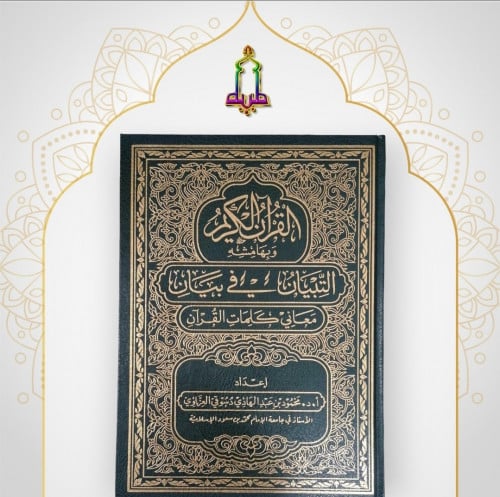 القُرآنُ الكَرِيمُ
وَبِهَامِشِهِ
التِّبْيَانُ فِي بَيَانِ
مَعَانِي كَلِمَاتِ القُرْآنِ
إعْدَاد
أ.د. مَحْمُود بن عَبْد الهَادِي دسُوقِي
الأستاذ في جامعة الإمام محمد بن سعود الإسلامية